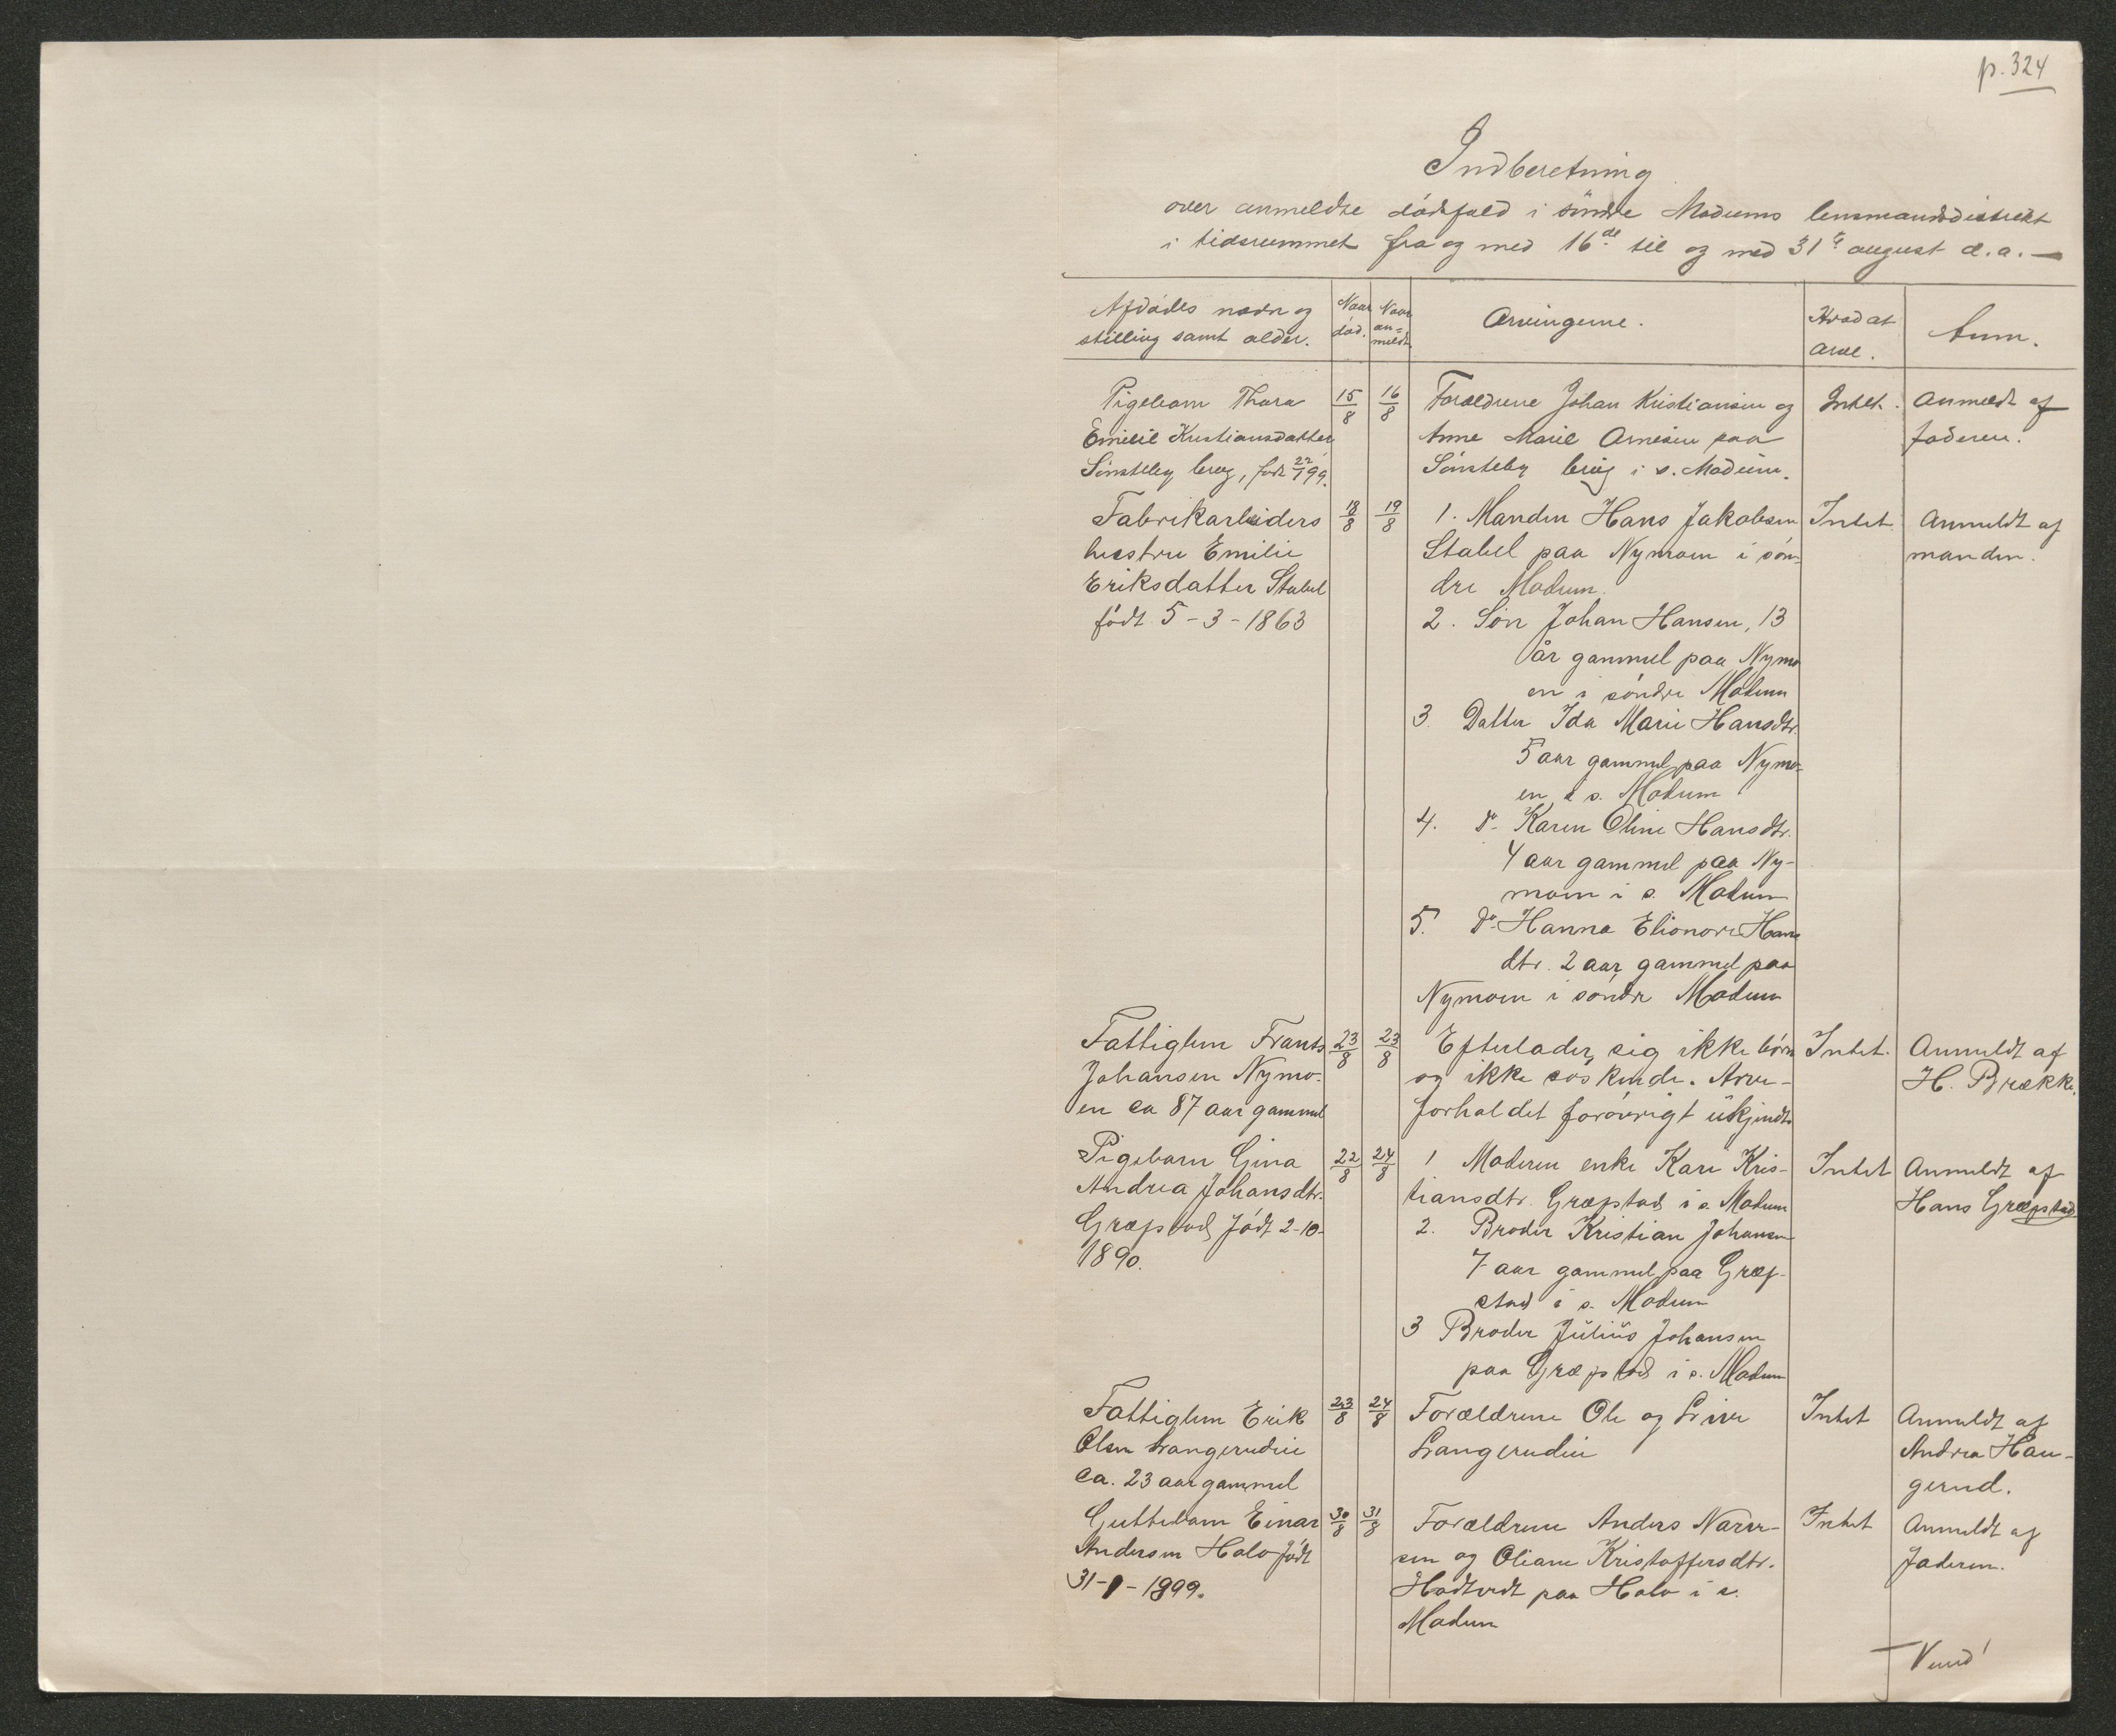 p. 324
Indberetning
over anmeldte dödsfald i söndre Modums lensmandsdistrikt
i tidsrummet fra og med 16de til og med 31te august d.a. —
Afdödes navn og stilling samt alder.
Naar död.
Naar an=meldt.
Arvingerne.
Hvad at arve.
Anm.
Pigebarn Thora
Emilie Kristiansdatter
Sönsteby brug, født 22/1 99.
15/8
16/8
Forældrene Johan Kristiansen og
Anne Marie Arnesen paa
Sönsteby brug i s. Modum.
Intet.
Anmeldt af
faderen.
Fabrikarbeiders
hustru Emilie
Eriksdatter Stabel
födt 5-3-1863
18/8
19/8
1. Manden Hans Jakobsen
Stabel paa Nymoen i sön-
dre Modum.
2. Sön Johan Hansen, 13
år gammel paa Nymo
en i söndre Modum
3. Datter Ida Marie Hansdtr.
5 aar gammel paa Nymo-
en i s. Modum
4. do Karen Oline Hansdtr.
4 aar gammel paa Ny-
moen i s. Modum
5. do Hanna Elionore Hans
dtr. 2 aar gammel paa
Nymoen i söndre Modum
Intet
Anmeldt af
manden.
Fattiglem Frants
Johansen Nymo-
en ca 87 aar gammel
23/8
23/8
Efterlader sig ikke börn
og ikke söskende. Arve-
forholdet forövrigt ukjendt
Intet.
Anmeldt af
H. Brække.
Pigebarn Gina
Andrea Johansdtr.
Græpstad födt 2-10-
1890.
22/8
24/8
1 Moderen enke Kari Kris-
tiansdtr. Græpstad i s. Modum
2. Broder Kristian Johansen
7 aar gammel paa Græp-
stad i s. Modum
3 Broder Julius Johansen
paa Græpstad i s. Modum
Intet
Anmeldt af
Hans Græpstad
Fattiglem Erik
Olsen Langerudeie
ca. 23 aar gammel
23/8
24/8
Forældrene Ole og Live
Langerudeie
Intet
Anmeldt af
Andrea Hau-
gerud.
Guttebarn Einar
Andersen Holo födt
31-1-1899.
30/8
31/8
Forældrene Anders Narve-
sen og Oliane Kristoffersdtr.
Hodtvedt paa Holo i s.
Modum
Intet
Anmeldt af
faderen.
Vend!